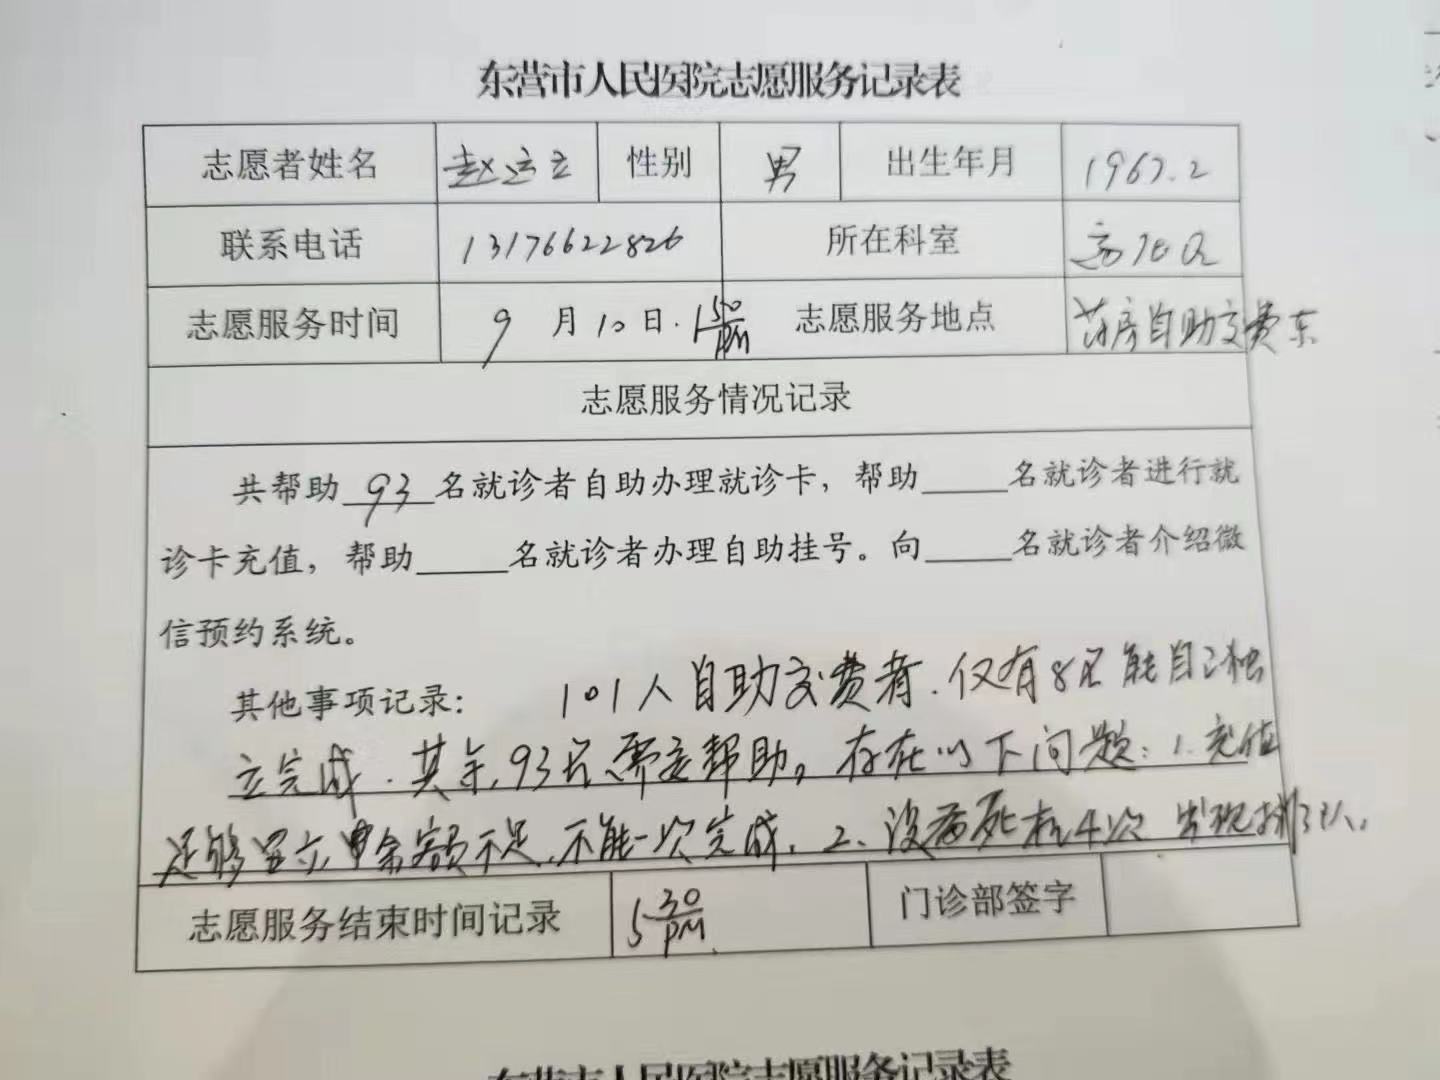 东营市人民医院志愿服务记录表
志愿者姓名 赵 立 性别 男 出生年月 1967.2
联系电话 13176622826 所在科室
志愿服务时间 9月10日.1 50 PM 志愿服务地点 药房自助交费东
志愿服务情况记录
共帮助93名就诊者自助办理就诊卡，帮助____名就诊者进行就
诊卡充值，帮助____名就诊者办理自助挂号。向____名就诊者介绍微
信预约系统。
其他事项记录： 101人自助交费者.仅有8名能自己独
立完成.其余93名需要帮助。存在以下问题：1.充值
足够 余额不足.不能一次完成.2、设备死机4次 出现排队.
志愿服务结束时间记录 5 30 PM 门诊部签字
东营市人民医院志愿服务记录表